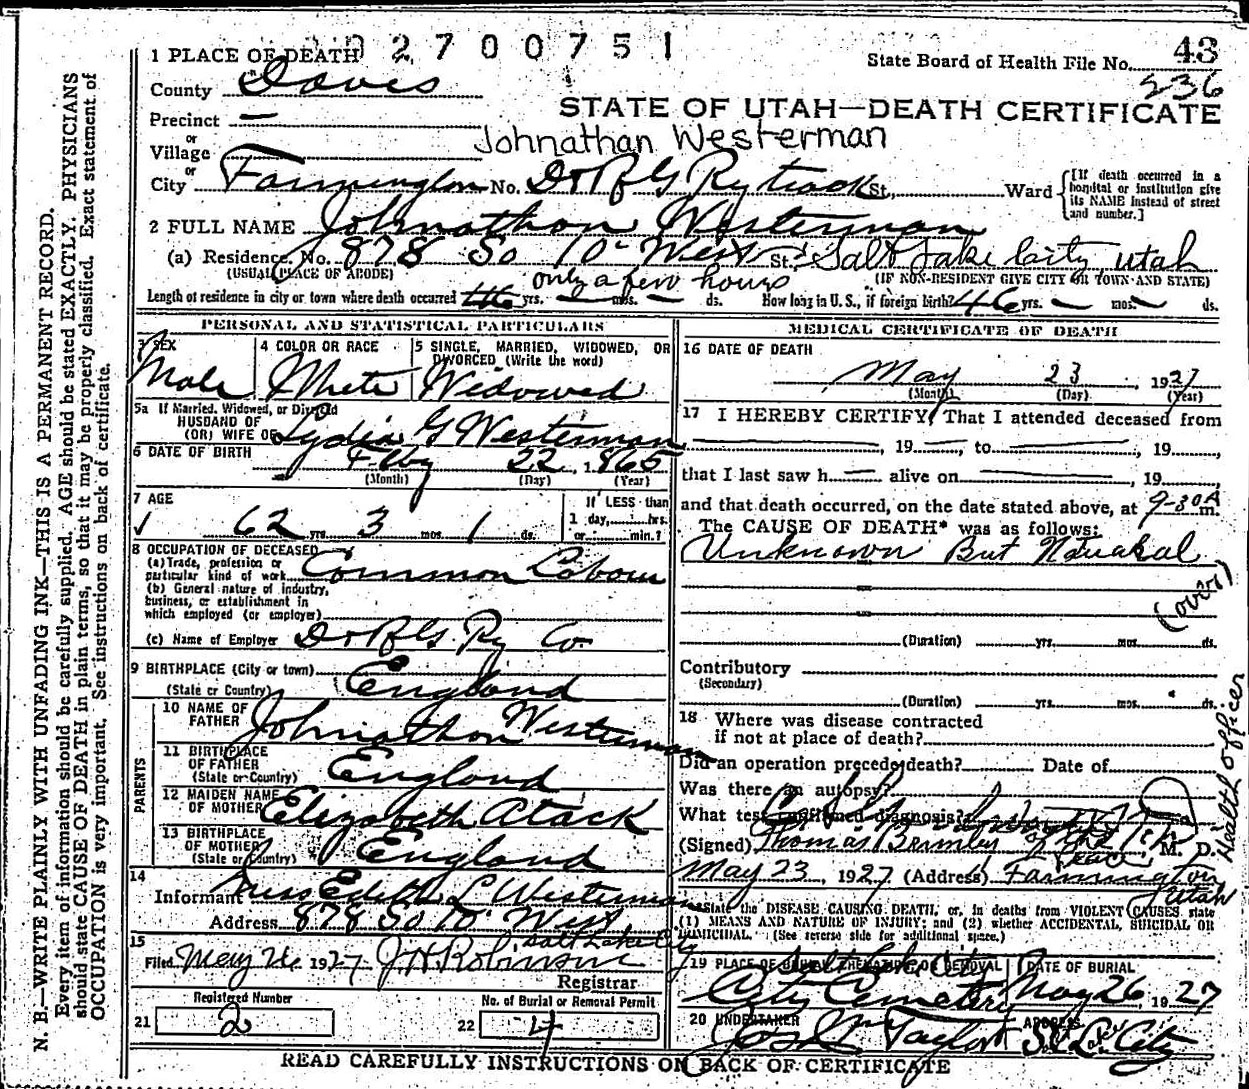 N. B.—WRITE PLAINLY WITH UNFADING INK—THIS IS A PERMANENT RECORD.
Every item of information should be carefully supplied. AGE should be stated EXACTLY. PHYSICIANS
should state CAUSE OF DEATH in plain terms, so that it may be properly classified. Exact statement of
OCCUPATION is very important. See instructions on back of certificate.
02700751
1 PLACE OF DEATH
State Board of Health File No. 43
236
County Davis
STATE OF UTAH—DEATH CERTIFICATE
Precinct —
or
Johnathan Westerman
Village
or
City Farmington No. D & R G Ry track St, Ward
[If death occurred in a
hospital or institution give
its NAME instead of street
and number.]
2 FULL NAME Johnathon Westerman
(a) Residence. No. 878 So 10 West St. Salt Lake City Utah
(USUAL PLACE OF ABODE) (IF NON-RESIDENT GIVE CITY OR TOWN AND STATE)
only a few hours
Length of residence in city or town where death occurred 46 yrs. — mos. — ds. How long in U. S., if foreign birth? 46 yrs. — mos. — ds.
PERSONAL AND STATISTICAL PARTICULARS
3 SEX
Male
4 COLOR OR RACE
White
5 SINGLE, MARRIED, WIDOWED, OR
DIVORCED (Write the word)
Widowed
5a If Married, Widowed, or Divorced
HUSBAND OF
(OR) WIFE OF Lydia G Westerman
6 DATE OF BIRTH
22, 1865
(Month) (Day) (Year)
7 AGE
62 yrs. 3 mos. 1 ds.
If LESS than
1 day, hrs.
or min.?
8 OCCUPATION OF DECEASED
(a) Trade, profession or
particular kind of work Common Labour
(b) General nature of industry,
business, or establishment in
which employed (or employer)
(c) Name of Employer D & R G Ry Co.
9 BIRTHPLACE (City or town)
(State or Country) England
PARENTS
10 NAME OF
FATHER Johnathon Westerman
11 BIRTHPLACE
OF FATHER
(State or Country) England
12 MAIDEN NAME
OF MOTHER Elizabeth Atack
13 BIRTHPLACE
OF MOTHER
(State or Country) England
14
Informant Miss Edith L Westerman
Address 878 So 10 West
Salt Lake City
15
Filed May 26 1927 J H Robinson
Registrar
Registered Number
21 2
No. of Burial or Removal Permit
22 4
MEDICAL CERTIFICATE OF DEATH
16 DATE OF DEATH
May 23, 1927
(Month) (Day) (Year)
17 I HEREBY CERTIFY, That I attended deceased from
— 19 —, to — , 19
that I last saw h — alive on — , 19
and that death occurred, on the date stated above, at 9-30 A m.
The CAUSE OF DEATH* was as follows:
Unknown But Natural
(over)
(Duration) yrs. mos. ds.
Contributory
(Secondary)
(Duration) yrs. mos. ds.
18 Where was disease contracted
if not at place of death?
Did an operation precede death? Date of
Was there an autopsy?
What test confirmed diagnosis?
(Signed) Thomas M. D.
Health officer
May 23, 1927 (Address) Farmington
Utah
*State the DISEASE CAUSING DEATH, or, in deaths from VIOLENT CAUSES state
(1) MEANS AND NATURE OF INJURY; and (2) whether ACCIDENTAL, SUICIDAL OR
HOMICIDAL. (See reverse side for additional space.)
19 PLACE OF BURIAL, CREMATION, OR REMOVAL
Salt Lake City
City Cemetery
DATE OF BURIAL
May 26, 1927
20 UNDERTAKER
Jos Wm Taylor
ADDRESS
S. Lake City
READ CAREFULLY INSTRUCTIONS ON BACK OF CERTIFICATE